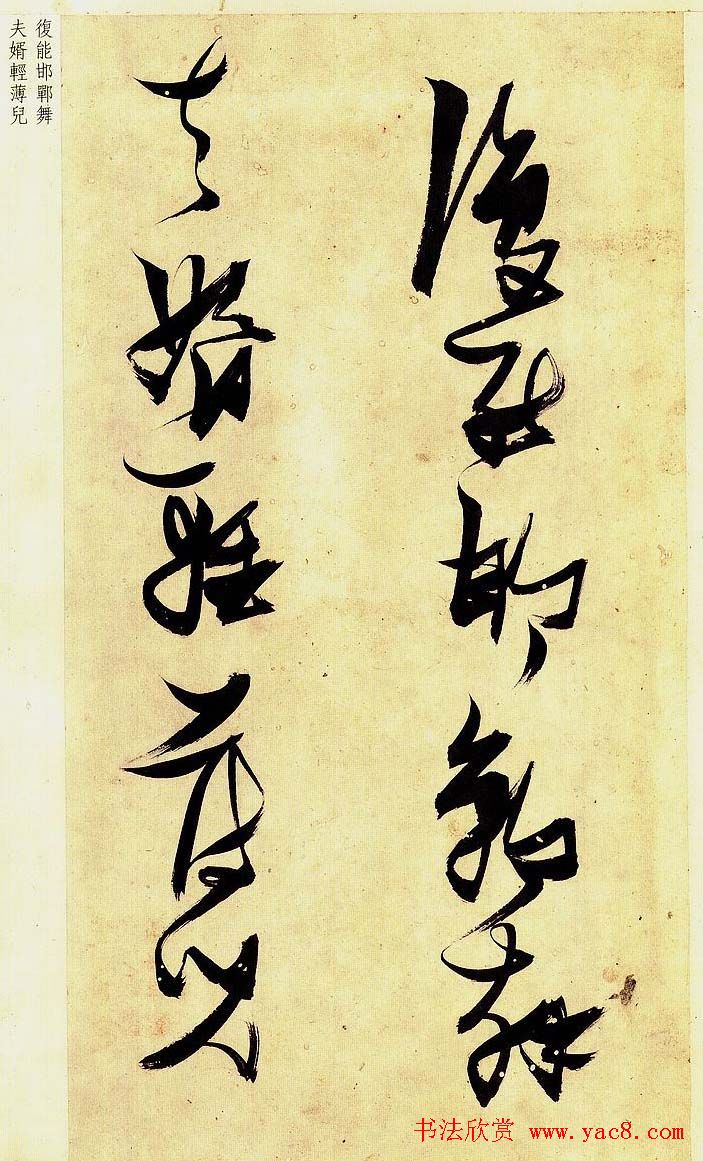 復能邯鄲舞
夫婿輕薄兒
復能邯鄲舞
夫婿輕薄兒
书法欣赏 www.yac8.com